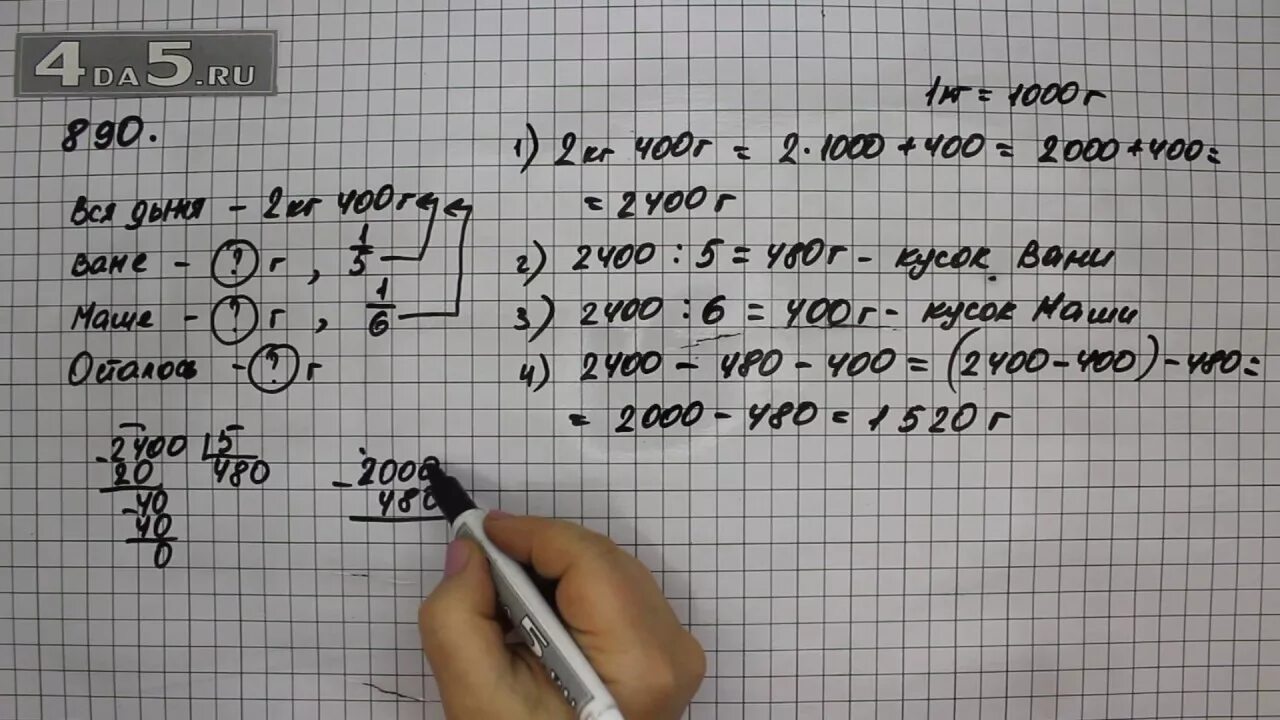 4DA5.RU
890.
Вся дыня - 2кг 400г
Ване - ? г, 1/5
Маше - ? г, 1/6
Осталось - ? г
1кг = 1000г
1) 2кг 400г = 2·1000 + 400 = 2000 + 400 =
= 2400 г
2) 2400 : 5 = 480г - кусок Вани
3) 2400 : 6 = 400г - кусок Маши
4) 2400 - 480 - 400 = (2400 - 400) - 480 =
= 2000 - 480 = 1520 г
- 2400 | 5
20 480
- 40
40
0
- 2000
480
5